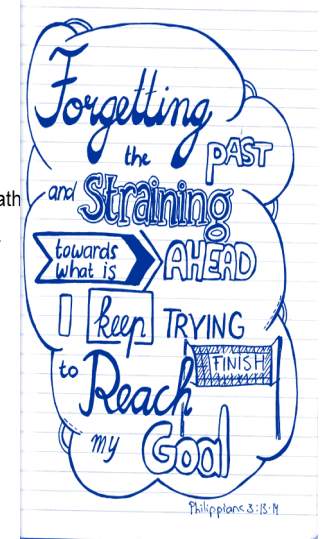 Forgetting
the PAST
ath
and Straining
towards
what is
AHEAD
I keep TRYING
FINISH
to Reach
my Goal
Philippians 3:13-14